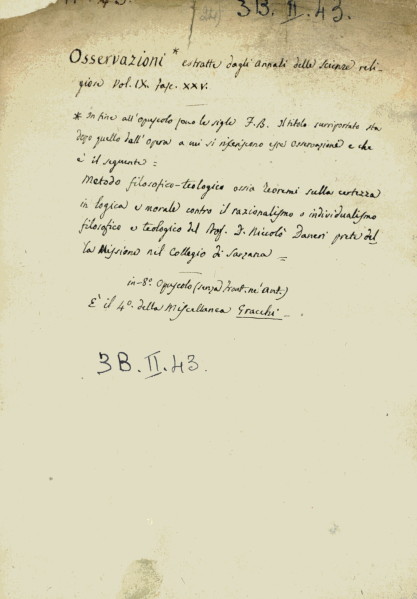 3B.II.43.
Osservazioni * estratte dagli annali delle scienze reli-
giose Vol. IX. fasc. XXV.
* In fine all'opuscolo sono le sigle F.B. Il titolo surriportato sta
dopo quello dell'opera a cui si riferiscono esse osservazione e che
è il seguente =
Metodo filosofico-teologico ossia Teoremi sulla certezza
in logica e morale contro il razionalismo o individualismo
filosofico e teologico del Prof. D. Niccolò Daneri prete del
la Missione nel Collegio di Sarzana =
in-8º. Opuscolo (senza front. ne' ant.)
E' il 4º. della Miscellanea Gracchi _
3B.II.43.